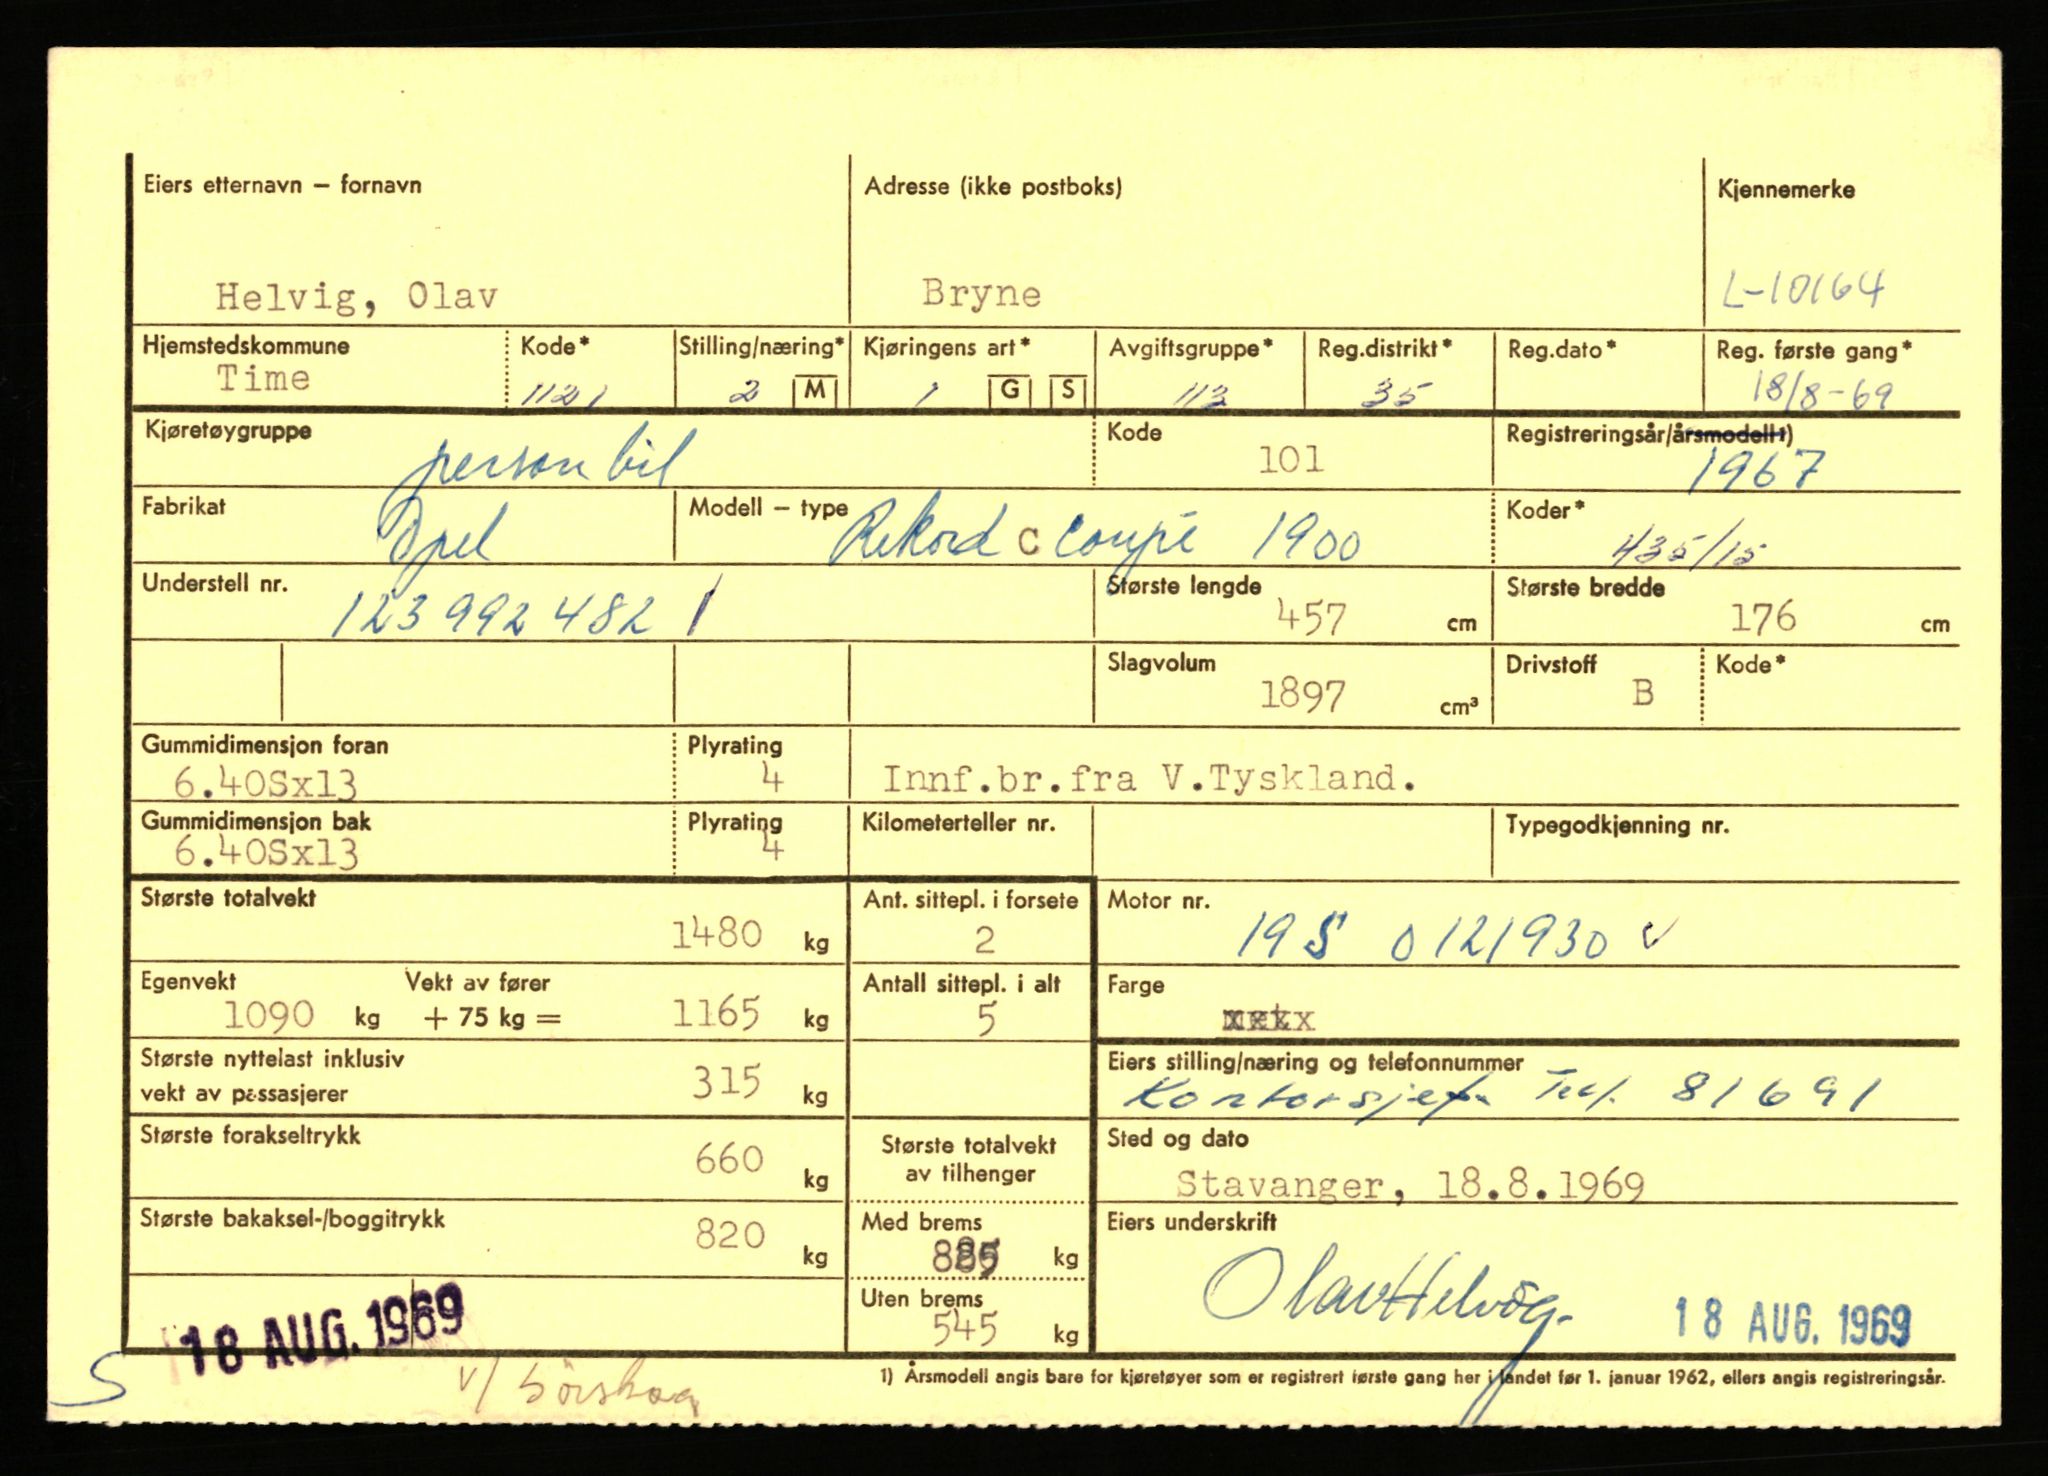 Eiers etternavn – fornavn Adresse (ikke postboks) Kjennemerke
Helvig, Olav Bryne L-10164
Hjemstedskommune Kode* Stilling/næring* Kjøringens art* Avgiftsgruppe* Reg.distrikt* Reg.dato* Reg. første gang*
Time 1121 2 M 1 G S 113 35 18/8-69
Kjøretøygruppe Kode Registreringsår/årsmodell1)
personbil 101 1967
Fabrikat Modell – type Koder*
Opel Rekord C coupé 1900 435/15
Understell nr. Største lengde Største bredde
123992482 457 cm 176 cm
Slagvolum Drivstoff Kode*
1897 cm³ B
Gummidimensjon foran Plyrating
6.40Sx13 4 Innf.br.fra V.Tyskland.
Gummidimensjon bak Plyrating Kilometerteller nr. Typegodkjenning nr.
6.40Sx13 4
Største totalvekt Ant. sittepl. i forsete Motor nr.
1480 kg 2 19S 0121930 v
Egenvekt Vekt av fører Antall sittepl. i alt Farge
1090 kg + 75 kg = 1165 kg 5
Største nyttelast inklusiv Eiers stilling/næring og telefonnummer
vekt av passasjerer 315 kg Kontorsjef Tel. 81691
Største forakseltrykk Største totalvekt Sted og dato
660 kg av tilhenger Stavanger, 18.8.1969
Største bakaksel-/boggitrykk Med brems Eiers underskrift
820 kg kg
Olav Helvig
Uten brems
18 AUG. 1969 545 kg 18 AUG. 1969
S v/
1) Årsmodell angis bare for kjøretøyer som er registrert første gang her i landet før 1. januar 1962, ellers angis registreringsår.